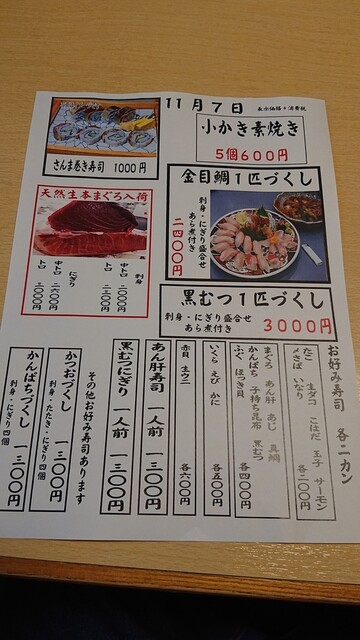 11月7日
表示価格+消費税
さんま巻き寿司 1000円
小かき素焼き
5個600円
天然生本まぐろ入荷
刺身
中トロ 二二〇〇円
トロ 三二〇〇円
にぎり
中トロ 二六〇〇円
トロ 三二〇〇円
金目鯛1匹づくし
刺身・にぎり盛合せ
あら煮付き
二四〇〇円
黒むつ1匹づくし
刺身・にぎり盛合せ
あら煮付き
3000円
お好み寿司 各二カン
たこ 生ダコ こはだ 玉子 サーモン
〆さば いなり 各三〇〇円
まぐろ あん肝 あじ 真鯛
かんぱち 子持ち昆布 黒むつ
ふぐ ほっき貝 各四〇〇円
いくら えび かに 各五〇〇円
赤貝 生ウニ 各六〇〇円
あん肝寿司 一人前 一三〇〇円
黒むつにぎり 一人前 一三〇〇円
その他お好み寿司あります
かつおづくし 一三〇〇円
刺身・たたき・にぎり四個
かんぱちづくし 一三〇〇円
刺身・にぎり四個